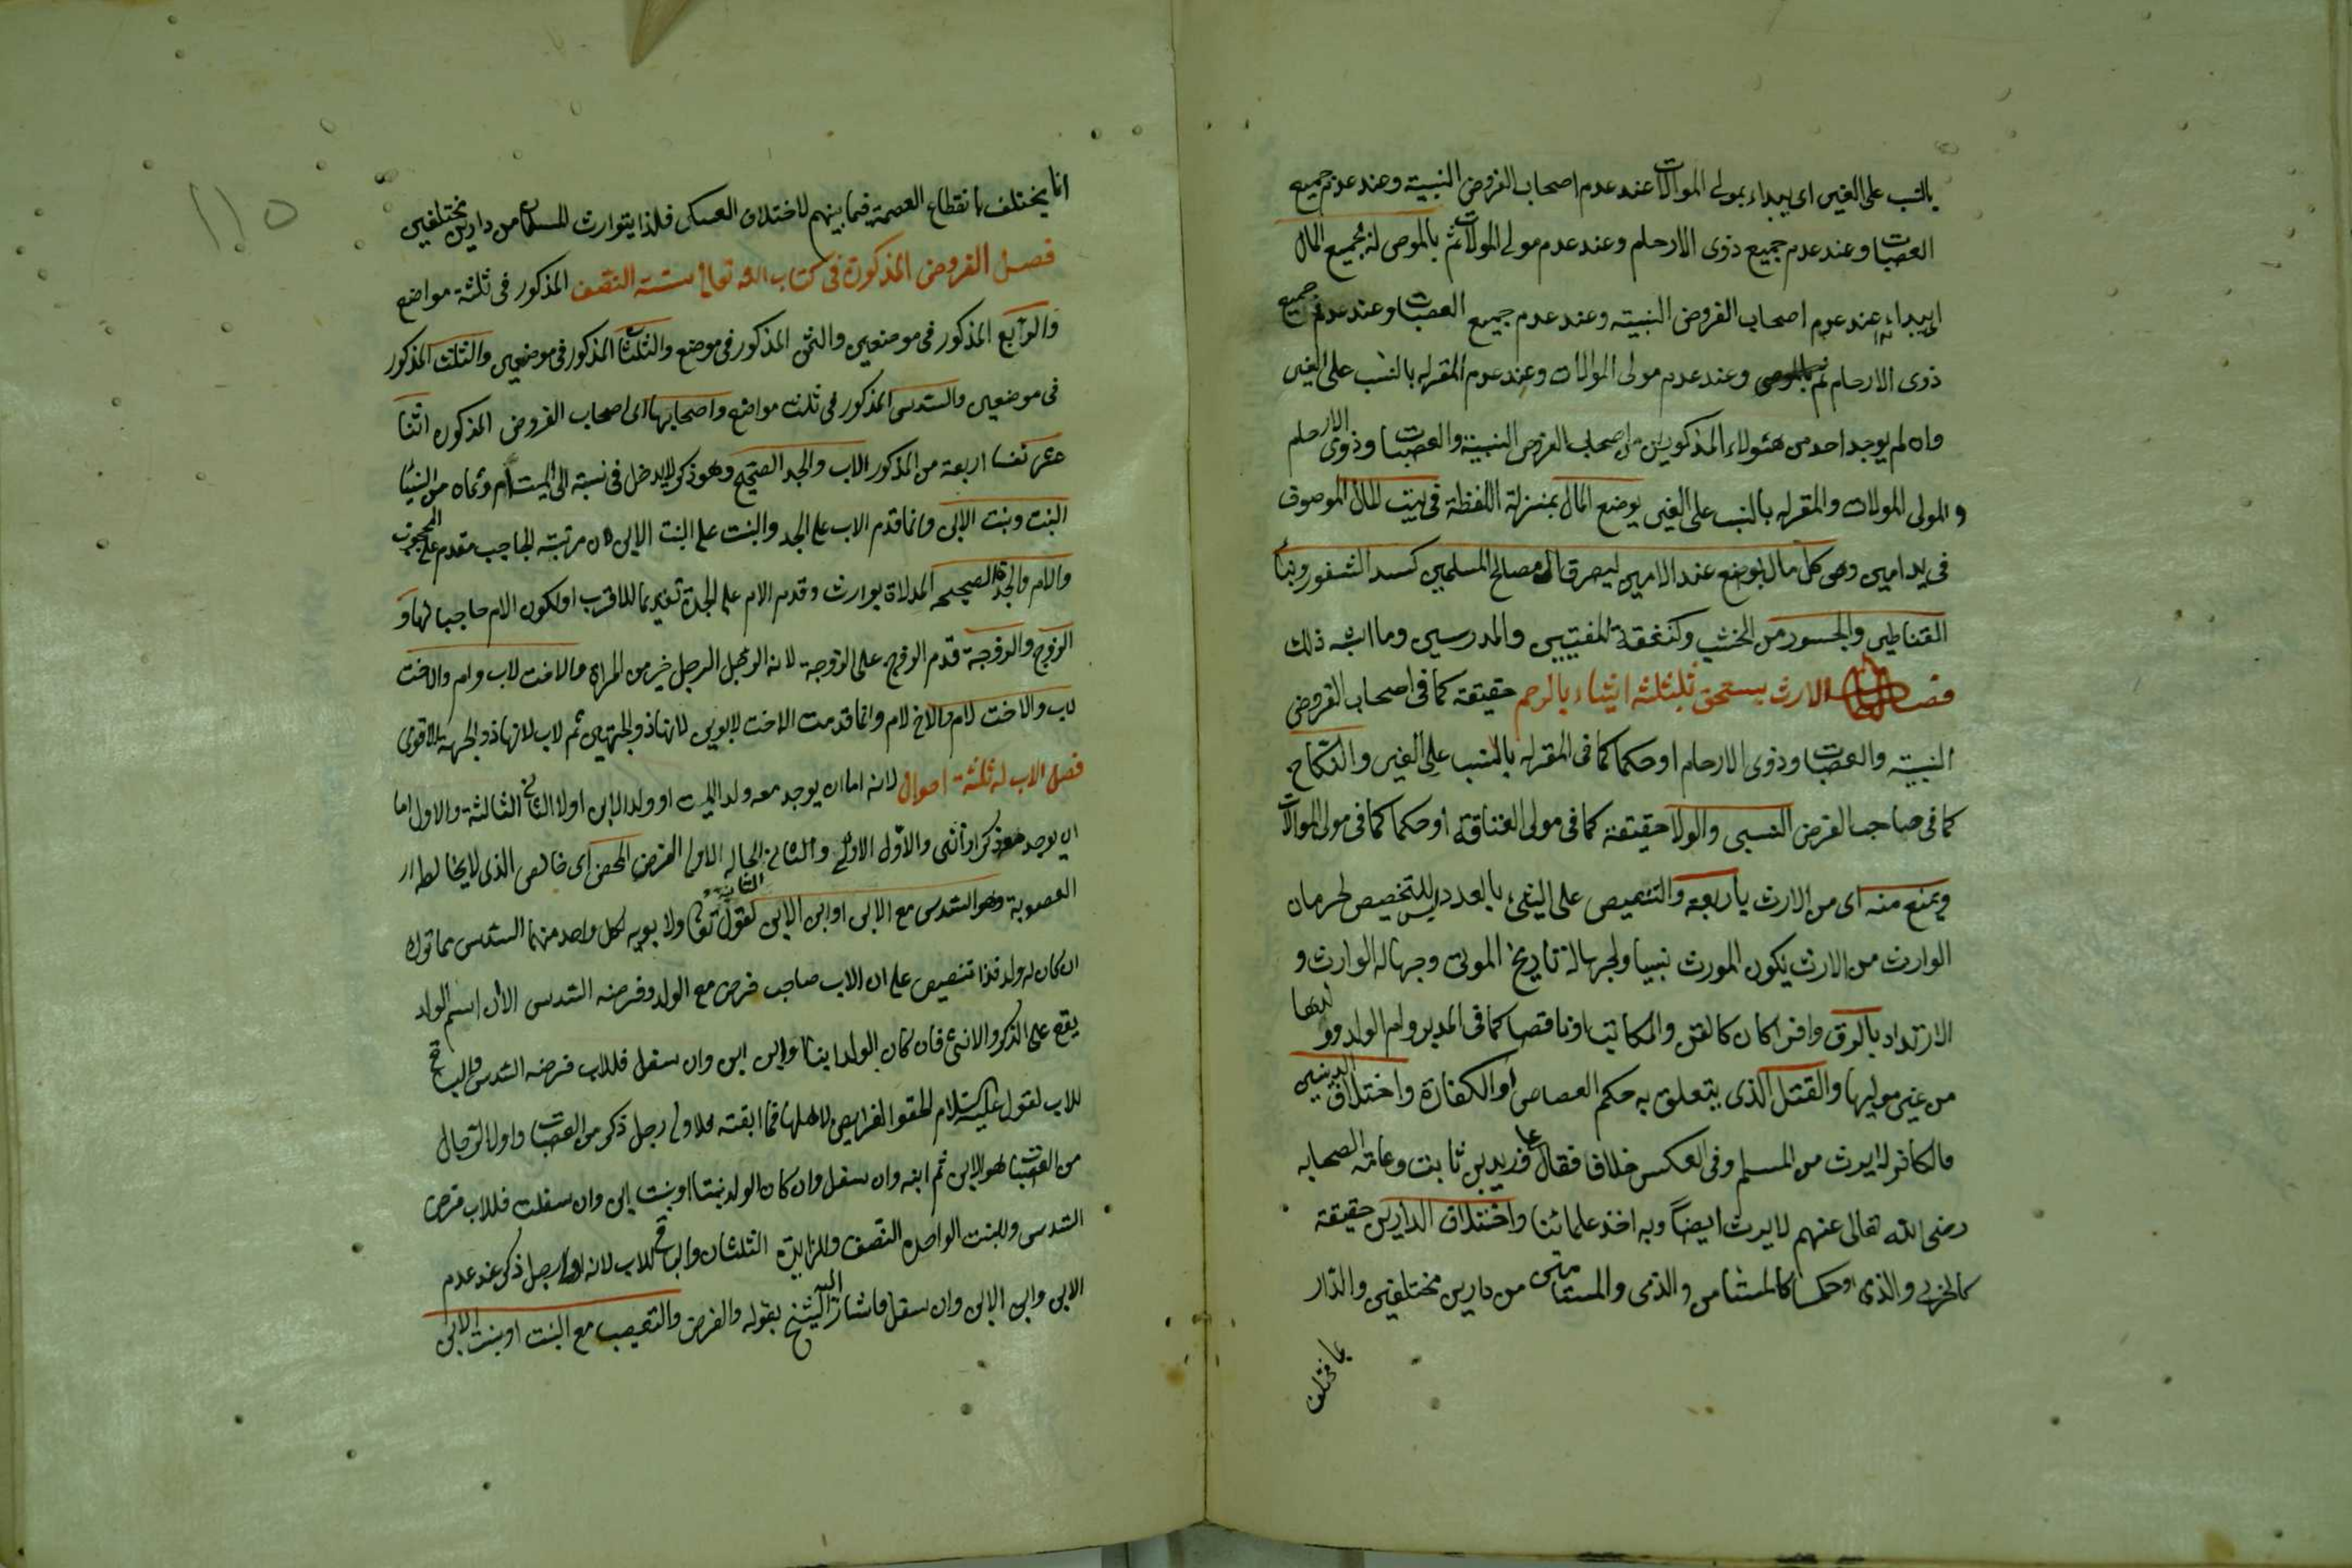 بالنسب على الغير اى يبداء بمولى الموالات عند عدم اصحاب الفروض النسبية وعند عدم جميع
العصبات وعند عدم جميع ذوى الارحام وعند عدم مولى المولات ثم بالموصى له بجميع المال
اى يبداء به عند عدم اصحاب الفروض النسبية وعند عدم جميع العصبات وعند عدم جميع
ذوى الارحام ثم وعند عدم مولى الموالات وعند عدم المقر له بالنسب على الغير
وان لم يوجد احد من هئولاء المذكورين من اصحاب الفروض النسبية والعصبات وذوى الارحام
والمولى المولات والمقر له بالنسب على الغير يوضع المال بمنزلة اللقطة فى بيت المال الموصوف
فى يد امين وهى كل مال يوضع عند الامير ليصرف الى مصالح المسلمين كسد الثغور وبناء
القناطير والجسور من الخشب وكنفقة المفتيين والمدرسين وما اشبه ذلك
فصل الارث يستحق بثلثة اشياء بالرحم حقيقة كما فى اصحاب الفروض
النسبية والعصبات وذوى الارحام او حكما كما فى المقر له بالنسب على الغير والنكاح
كما فى صاحب الفرض السببى والولا حقيقة كما فى مولى العتاقة او حكما كما فى مولى الموالات
ويمنع منه اى من الارث باربعة والتنصيص على الشئ بالعدد ليس للتخصيص لحرمان
الوارث من الارث بكون المورث نبيا ولجهالة تاريخ الموتى وجهالة الوارث و
الارتداد بالرق وافرا كان كالقن والمكاتب او ناقصا كما فى المدبر وام الولد وولدها
من غير موليها والقتل الذى يتعلق به حكم القصاص او الكفارة واختلاف الدينين
فالكافر لا يرث من المسلم وفى العكس خلاف فقال على وزيد بن ثابت وعامة الصحابه
رضى الله تعالى عنهم لا يرث ايضاً وبه اخذ علمائنا واختلاف الدارين حقيقة
كالحربى والذمى او حكما كالمستأمن والذمى والمستامنين من دارين مختلفين والدار
انما يختلف
انما يختلف بانقطاع العصمة فيما بينهم لاختلاف العسكر فلذا يتوارث المسلمان من دارين مختلفين
فصل الفروض المذكورة فى كتاب الله تعالى ستة النصف المذكور فى ثلثة مواضع
والرابع المذكور فى موضعين والثمن المذكور فى موضع والثلثان المذكور فى موضعين والثلث المذكور
فى موضعين والسدس المذكور فى ثلث مواضع واصحابها اى اصحاب الفروض المذكوره اثنا
عشر نفسا اربعة من المذكور الاب والجد الصحيح وهو ذكر لا يدخل فى نسبته الى الميت ام وثمان من النساء
البنت وبنت الابن وانما قدم الاب على الجد والبنت على البنت الابن لان مرتبة الحاجب مقدم على المحجوب
والام والجدة الصحيحة المدلاة بوارث وقدم الام على الجدة تقديما للاقرب او لكون الام حاجبا لها و
الزوج والزوجة قدم الزوج على الزوجة لانه الرجل الرجل خير من المراة والاخت لاب وام والاخت
لاب والاخت لام والاخ لام وانما قدمت الاخت لابوين لانها ذو الجهتين ثم لاب لانها ذو الجهة الاقوى
فصل الاب له ثلثة احوال لانه اما ان يوجد معه ولد الميت او ولد الابن اولا الثانى الثالثة والاول اما
ان يوجد معه ذكر او أنثى والاول الاولى والثانى الثانية الحالة الاولى الفرض المحض اى خالص الذى لا يخالطه
العصوبة وهو السدس مع الابن او ابن الابن لقوله تعالى ولابويه لكل واحد منهما السدس مما ترك
ان كان له ولد فذا تنصيص على ان الاب صاحب فرض مع الولد وفرضه السدس الا ان اسم الولد
يقع على الذكر والانثى فان كان الولد ابنا وابن ابن وان سفل فللاب فرضه السدس والباقى
للاب لقوله عليه السلام الحقوا الفرايض لاهلها فما ابقته فلاولى رجل ذكر من العصبات واولى الرجال
من العصبات هو الابن ثم ابنه وان سفل وان كان الولد بنتا او بنت ابن وان سفلت فللاب فرض
السدس وللبنت الواحدة النصف وللزايدة الثلثان والباقى للاب لانه اولى رجل ذكر عند عدم
الابن وابن الابن وان سفل واشار اليه الشيخ بقوله والفرض والتعصيب مع البنت او بنت الابن
١١٥